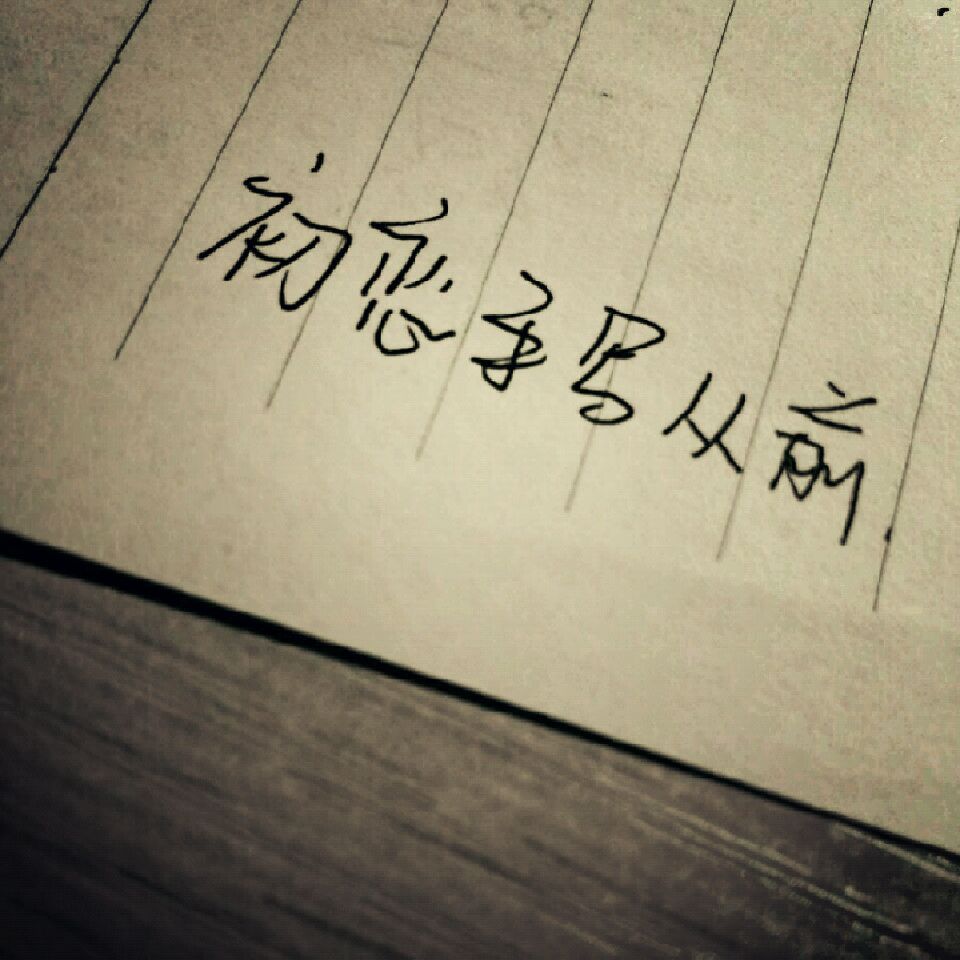 初恋手写从前.